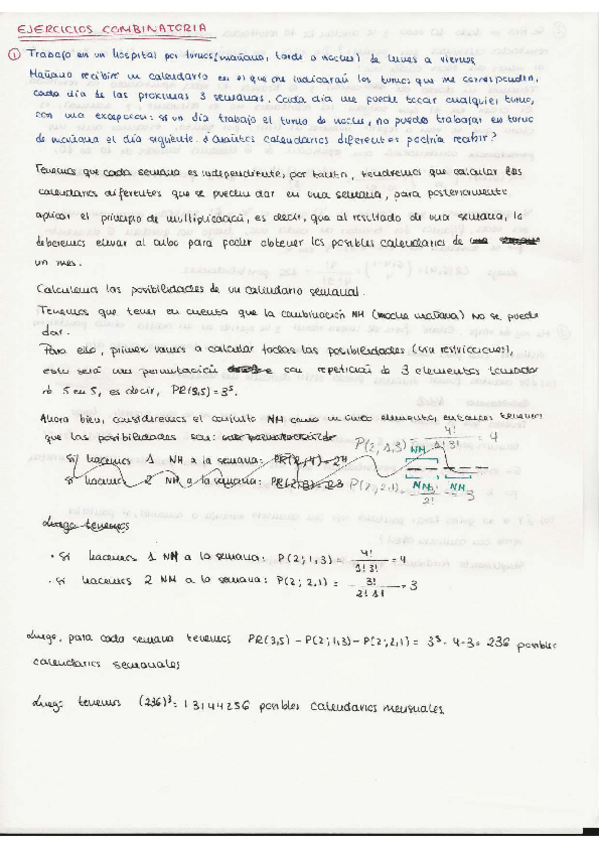 EJERCICIOS COMBINATORIA
① Trabajo en un hospital por turnos (mañana, tarde o noche) de lunes a viernes
Mañana recibiré un calendario en el que me indicarán los turnos que me corresponden,
cada día de las próximas 3 semanas. Cada día me puede tocar cualquier turno,
con una excepción: si un día trabajo el turno de noche, no puedes trabajar en turno
de mañana el día siguiente. ¿Cuántos calendarios diferentes podría recibir?
Tenemos que cada semana es independiente, por tanto, tendremos que calcular los
calendarios diferentes que se pueden dar en una semana, para posteriormente
aplicar el principio de multiplicación, es decir, que al resultado de una semana, lo
deberemos elevar al cubo para poder obtener los posibles calendarios de
un mes.
Calculemos las posibilidades de un calendario semanal.
Tenemos que tener en cuenta que la combinación NH (noche mañana) no se puede
dar.
Para ello, primero vamos a calcular todas las posibilidades (sin restricciones),
esto será una permutación con repetición de 3 elementos tomados
de 5 en 5, es decir, PR(3,5) = 3⁵.
Ahora bien, consideremos el conjunto NH como un único elemento, entonces tenemos
que las posibilidades son:
si hacemos 1 NH a la semana: PR(2,4) = 2⁴ P(2,1,3) 4!/1!3! = 4
si hacemos 2 NH a la semana: P(2;2,1) = 3
NH
NH NH
Luego tenemos
· Si hacemos 1 NH a la semana: P(2;1,3) = 4!/1!3! = 4
· Si hacemos 2 NH a la semana: P(2;2,1) = 3!/2!1! = 3
Luego, para cada semana tenemos PR(3,5) - P(2;1,3) - P(2;2,1) = 3⁵ - 4 - 3 = 236 posibles
calendarios semanales
Luego tenemos (236)³ = 13144256 posibles calendarios mensuales.